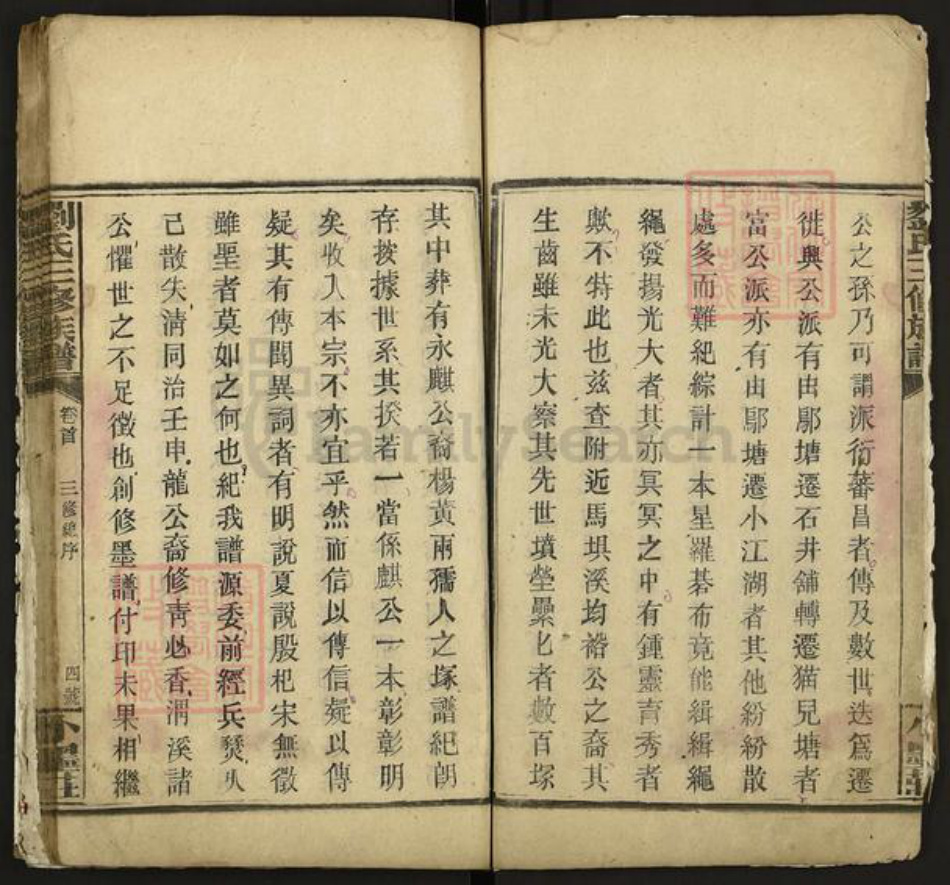 公之孫乃可謂派衍蕃昌者傳及數世迭爲遷
徙興公派有由鄏塘遷石井舖轉遷猫兒塘者
富公派亦有由鄏塘遷小江湖者其他紛紛散
處多而難紀綜計一本星羅碁布竟能緝緝繩
繩發揚光大者其亦冥冥之中有鍾靈育秀者
歟不特此也兹查附近馬垻溪均裕公之裔其
生齒雖未光大察其先世墳塋纍匕者數百塚
其中葬有永麒公裔楊黃兩孺人之塚譜紀朗
存按據世系其揆若一當係麒公一本彰彰明
矣收入本宗不亦宜乎然而信以傳信疑以傳
疑其有傳聞異詞者有明說夏說殷杞宋無徵
雖聖者莫如之何也紀我譜源委前經兵燹
已散失淸同治壬申龍公裔修靑必香渭溪諸
公懼世之不足徵也創修墨譜付印未果相繼
劉氏三修族譜
卷首
三修總序
四號
劉氏三修族譜